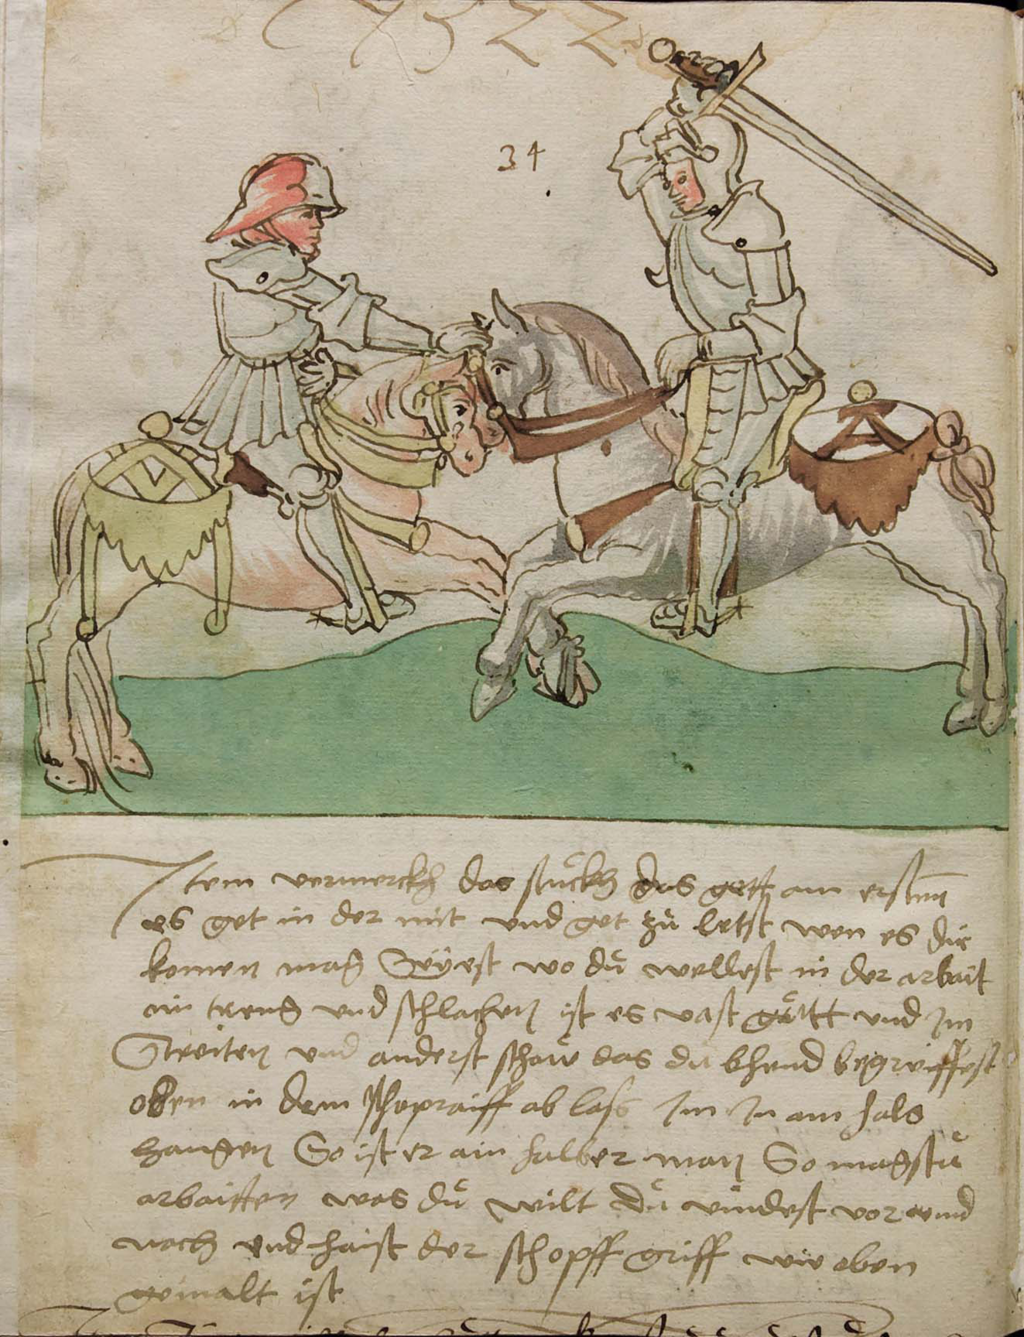 1522
34
Item vermerckh das stuckh das gett am ersten
es get in der mit vnd get zů letst wen es dir
komen mag Seyest wo dů wellest in der arbait
im treng vnd schlachen ist es vast gůtt vnd Im
Streiten vnd anderst schaw das du bhend begreiffest
oben in dem schopraiff ab lass Im In am hals
hangen So ist er ain halber man So magstů
arbaitten was dů wilt Dů vindest vor vnd
nach vnd haist der schopff griff wie oben
gemalt ist